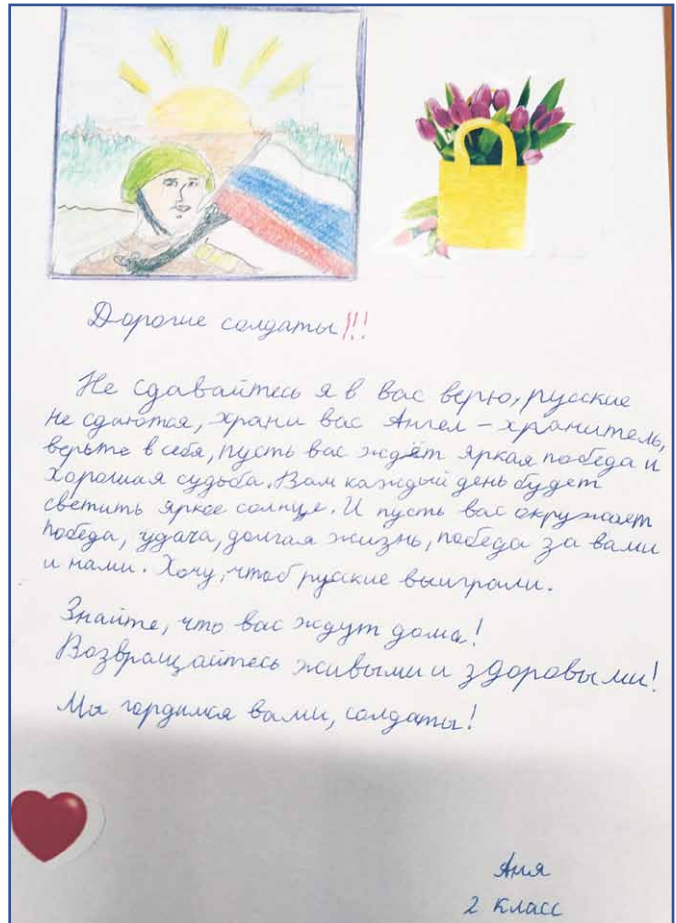 Дорогие солдаты!!!
Не сдавайтесь я в вас верю, русские
не сдаются, храни вас Ангел – хранитель,
верьте в себя, пусть вас ждёт яркая победа и
хорошая судьба. Вам каждый день будет
светить яркое солнце. И пусть вас окружает
победа, удача, долгая жизнь, победа за вами
и нами. Хочу, чтоб русские выиграли.
Знайте, что вас ждут дома!
Возвращайтесь живыми и здоровыми!
Мы гордимся вами, солдаты!
Аня
2 класс